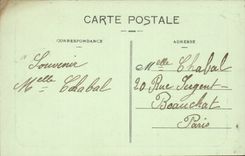 CARTE POSTALE
CORRESPONDANCE
ADRESSE
Souvenir
Melle Chabal
Melle Chabal
20 Rue Sergent
Beauchat
Paris